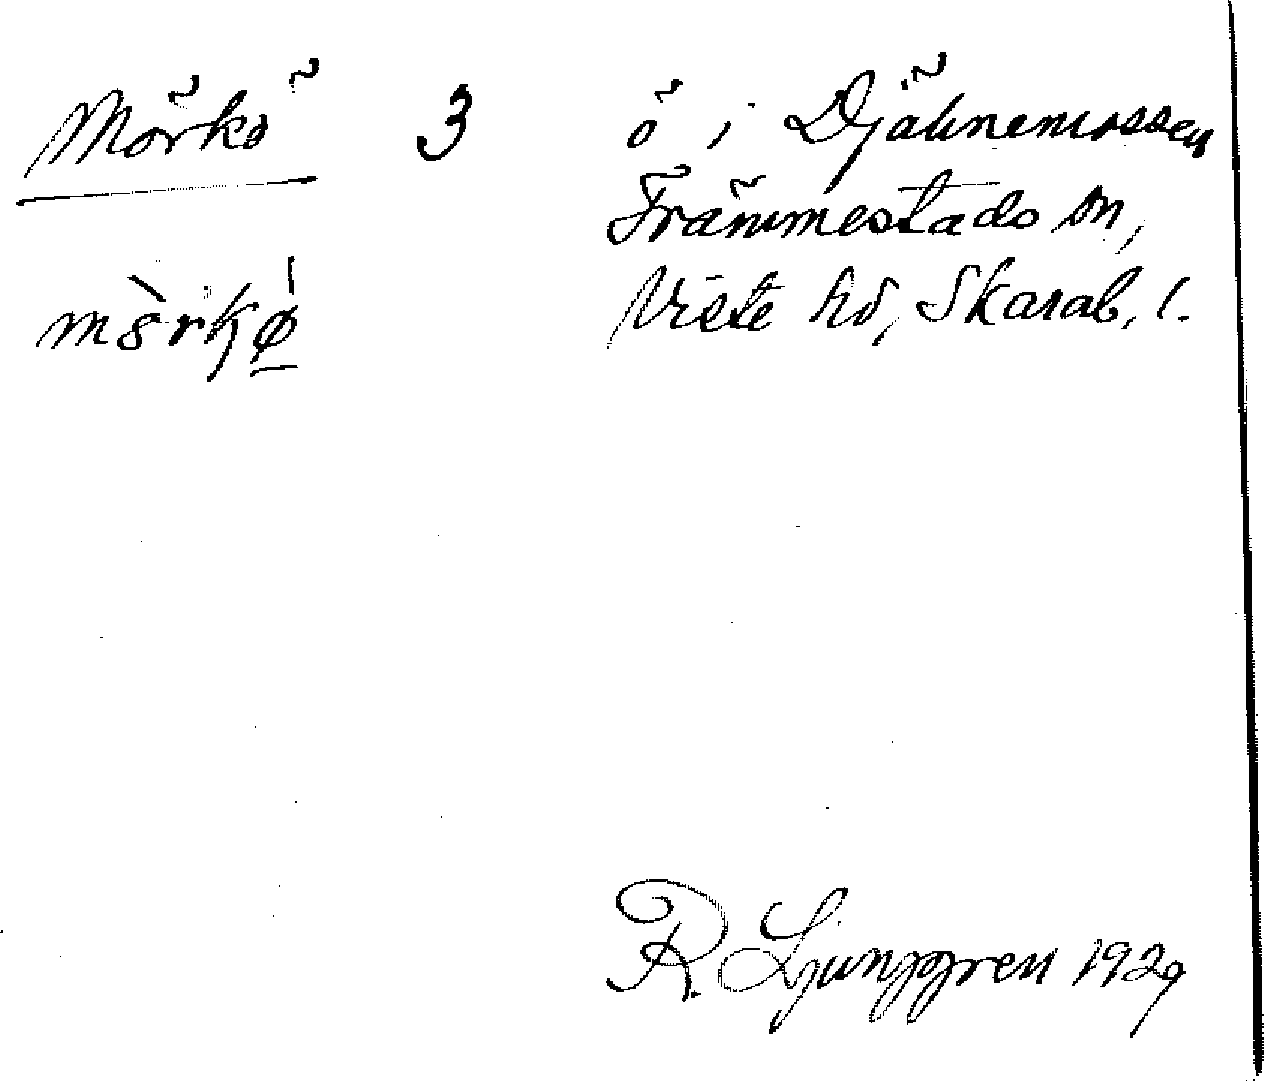 Mörkö 3 ö i Djäknemossen
Främmestads sn,
Viste hd, Skarab. l.
R. Ljunggren 1929